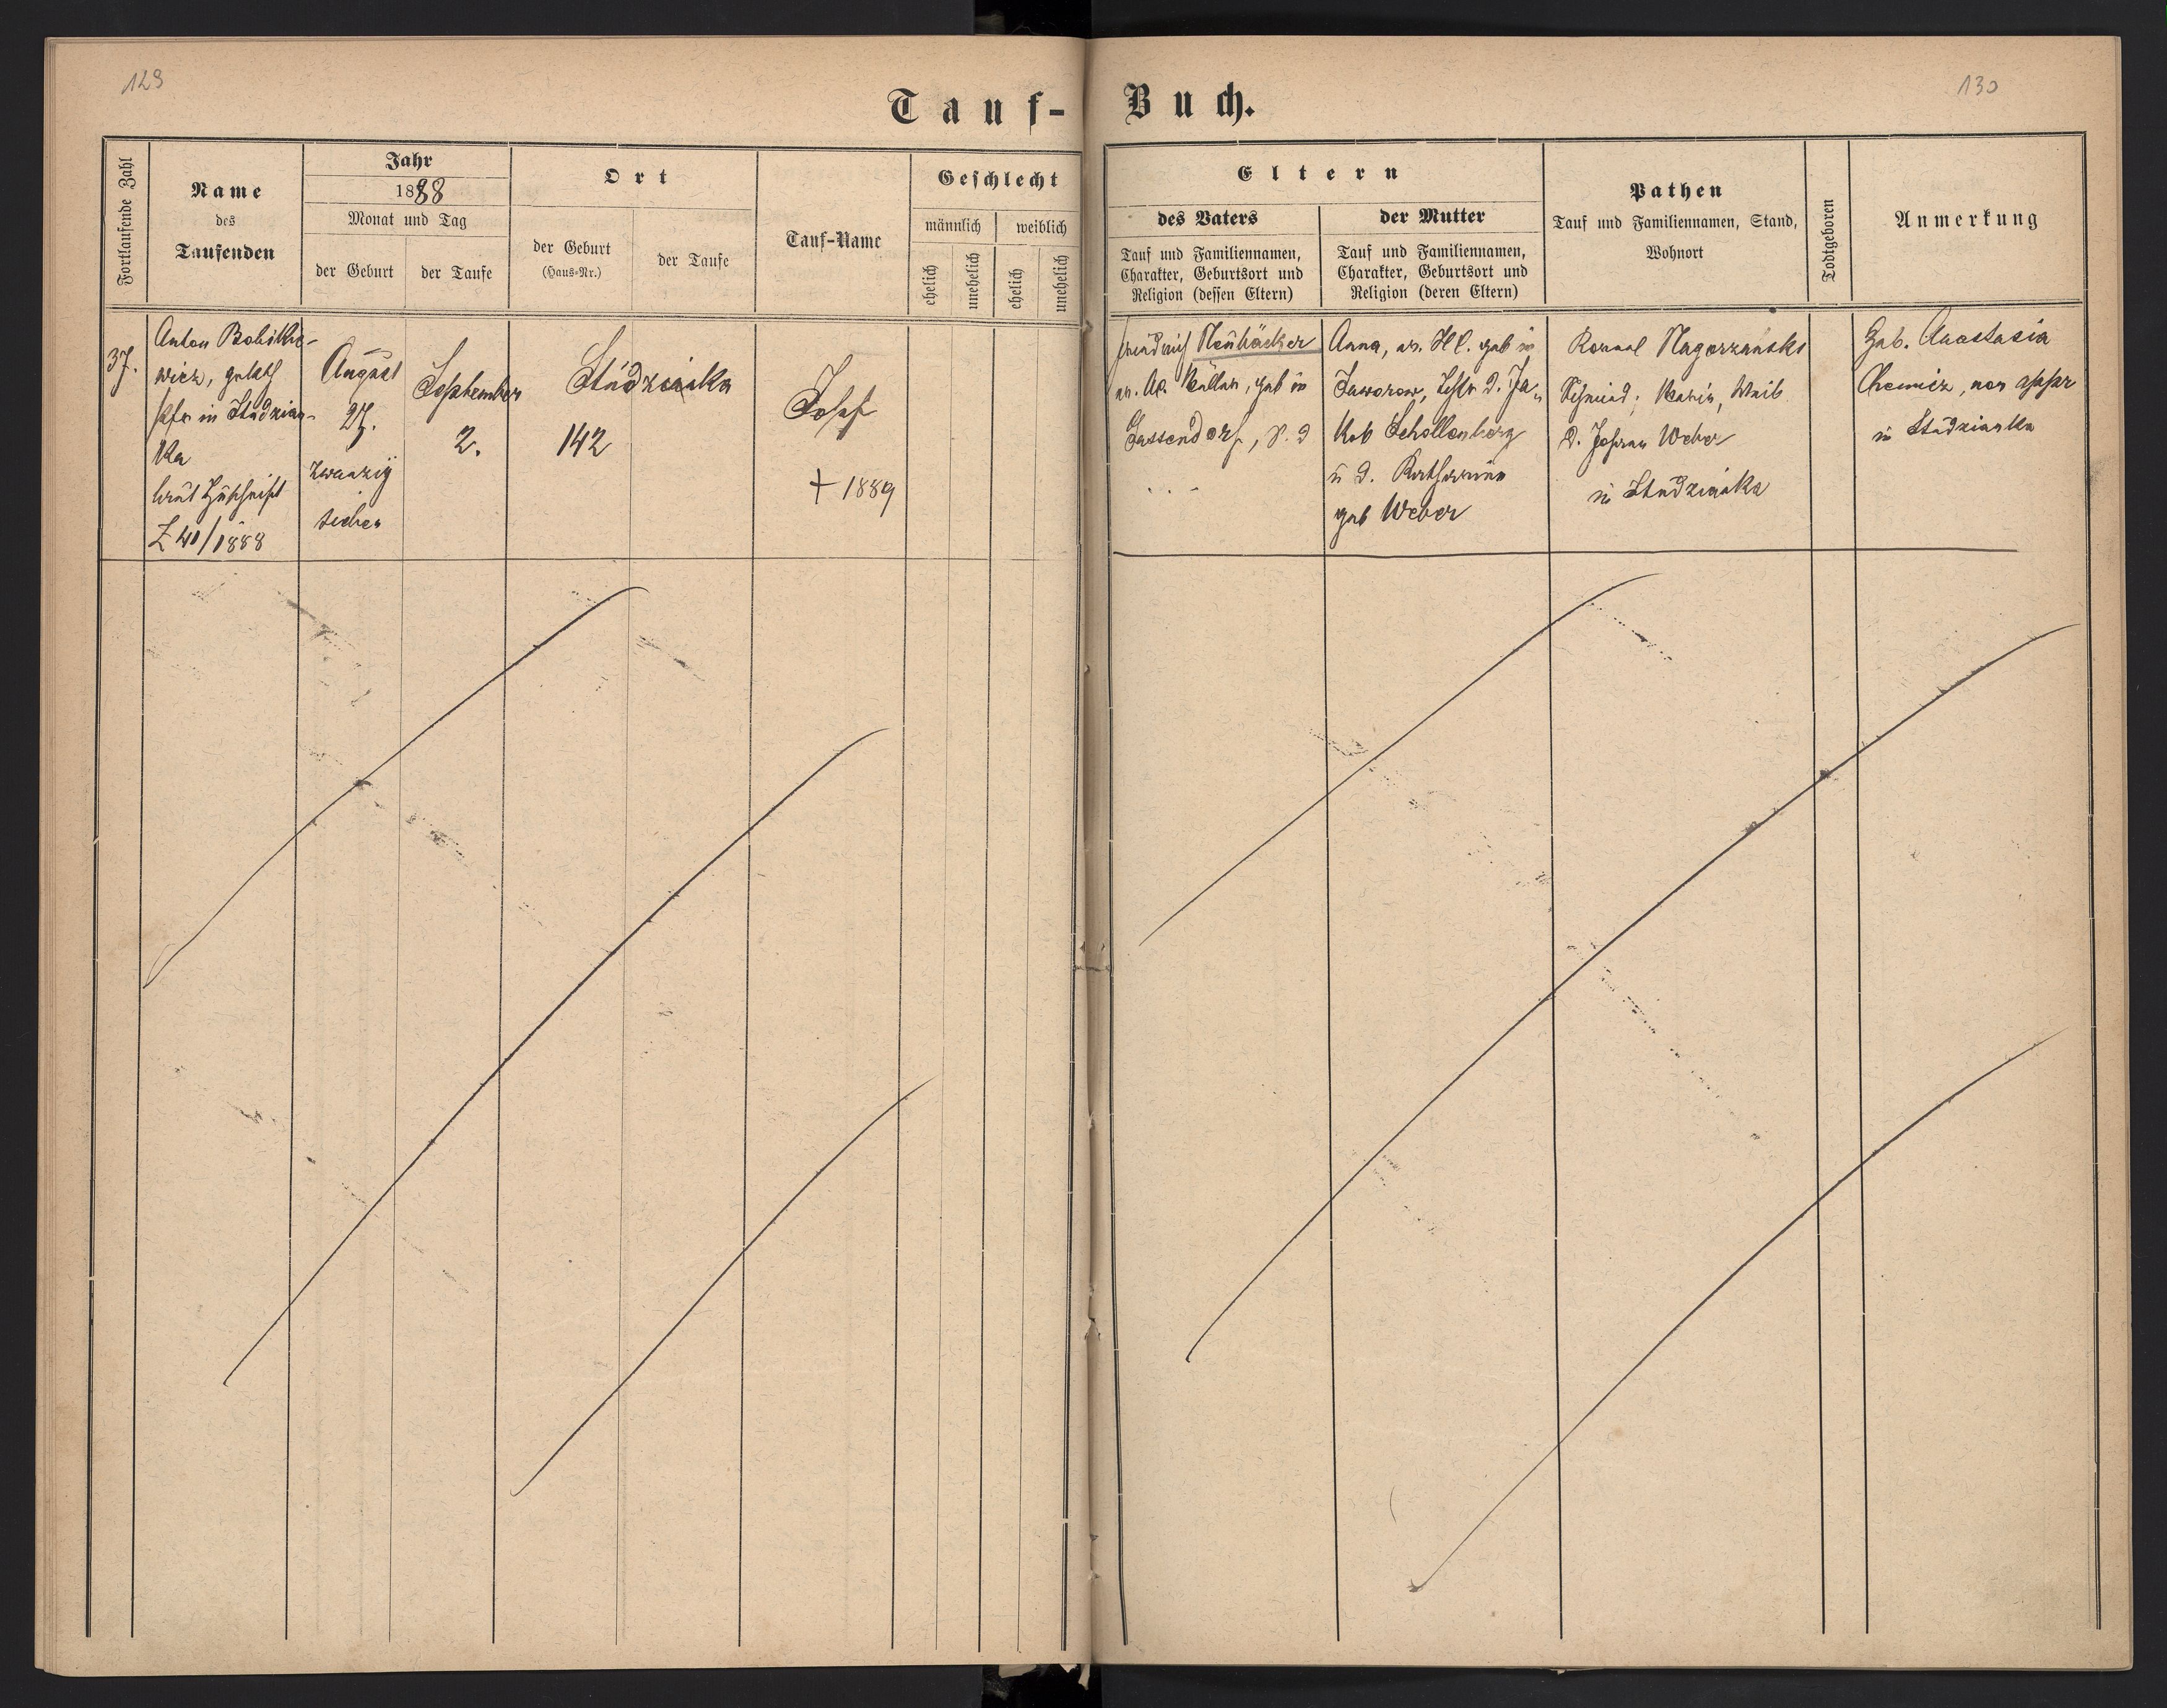 129
130
Tauf-Buch.
Fortlaufende Zahl
Name
des
Taufenden
Jahr
1888
Monat und Tag
der Geburt
der Taufe
Ort
der Geburt
(Haus-Nr.)
der Taufe
Tauf-Name
Geschlecht
männlich
weiblich
ehelich
unehelich
ehelich
unehelich
Eltern
des Vaters
Tauf und Familiennamen,
Charakter, Geburtsort und
Religion (dessen Eltern)
der Mutter
Tauf und Familiennamen,
Charakter, Geburtsort und
Religion (deren Eltern)
Pathen
Tauf und Familiennamen, Stand,
Wohnort
Todtgeboren
Anmerkung
37.
Anton
wicz,
in Studzian-
ka
laut Zuschrift
Z 40/1888
August
27.
zwanzig
sieben
September
2.
Studzianka
142
Josef
† 1889
Neubäcker
geb in
Anna, geb in
Jaworow, Tchtr d. Ja-
kob Schollenberg
u d. Katharina
geb Weber
Kornel Nagorzanski
Schmied; Maria, Weib
d. Johann Weber
in Studzianka
Heb. Anastasia
in Studzianka